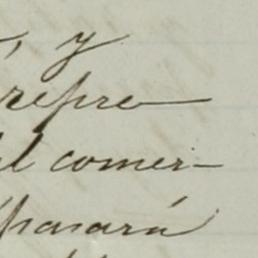 , y
repre
el comer-
pasará